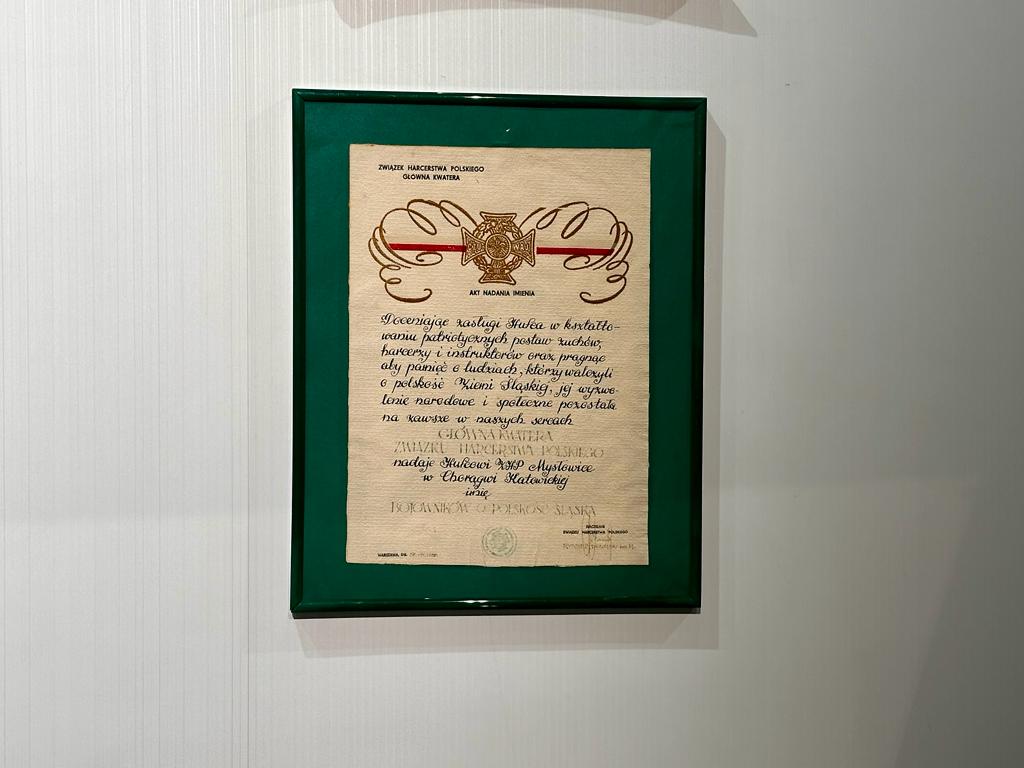 ZWIĄZEK HARCERSTWA POLSKIEGO
GŁÓWNA KWATERA
AKT NADANIA IMIENIA
Doceniając zasługi Hufca w kształto-
waniu patriotycznych postaw zuchów,
harcerzy i instruktorów oraz pragnąc
aby pamięć o ludziach, którzy walczyli
o polskość Ziemi Śląskiej, jej wyzwo-
lenie narodowe i społeczne pozostała
na zawsze w naszych sercach
GŁÓWNA KWATERA
ZWIĄZKU HARCERSTWA POLSKIEGO
nadaje Hufcowi ZHP Mysłowice
w Chorągwi Katowickiej
imię
BOJOWNIKÓW O POLSKOŚĆ ŚLĄSKA
NACZELNIK
ZWIĄZKU HARCERSTWA POLSKIEGO
WARSZAWA, DN.